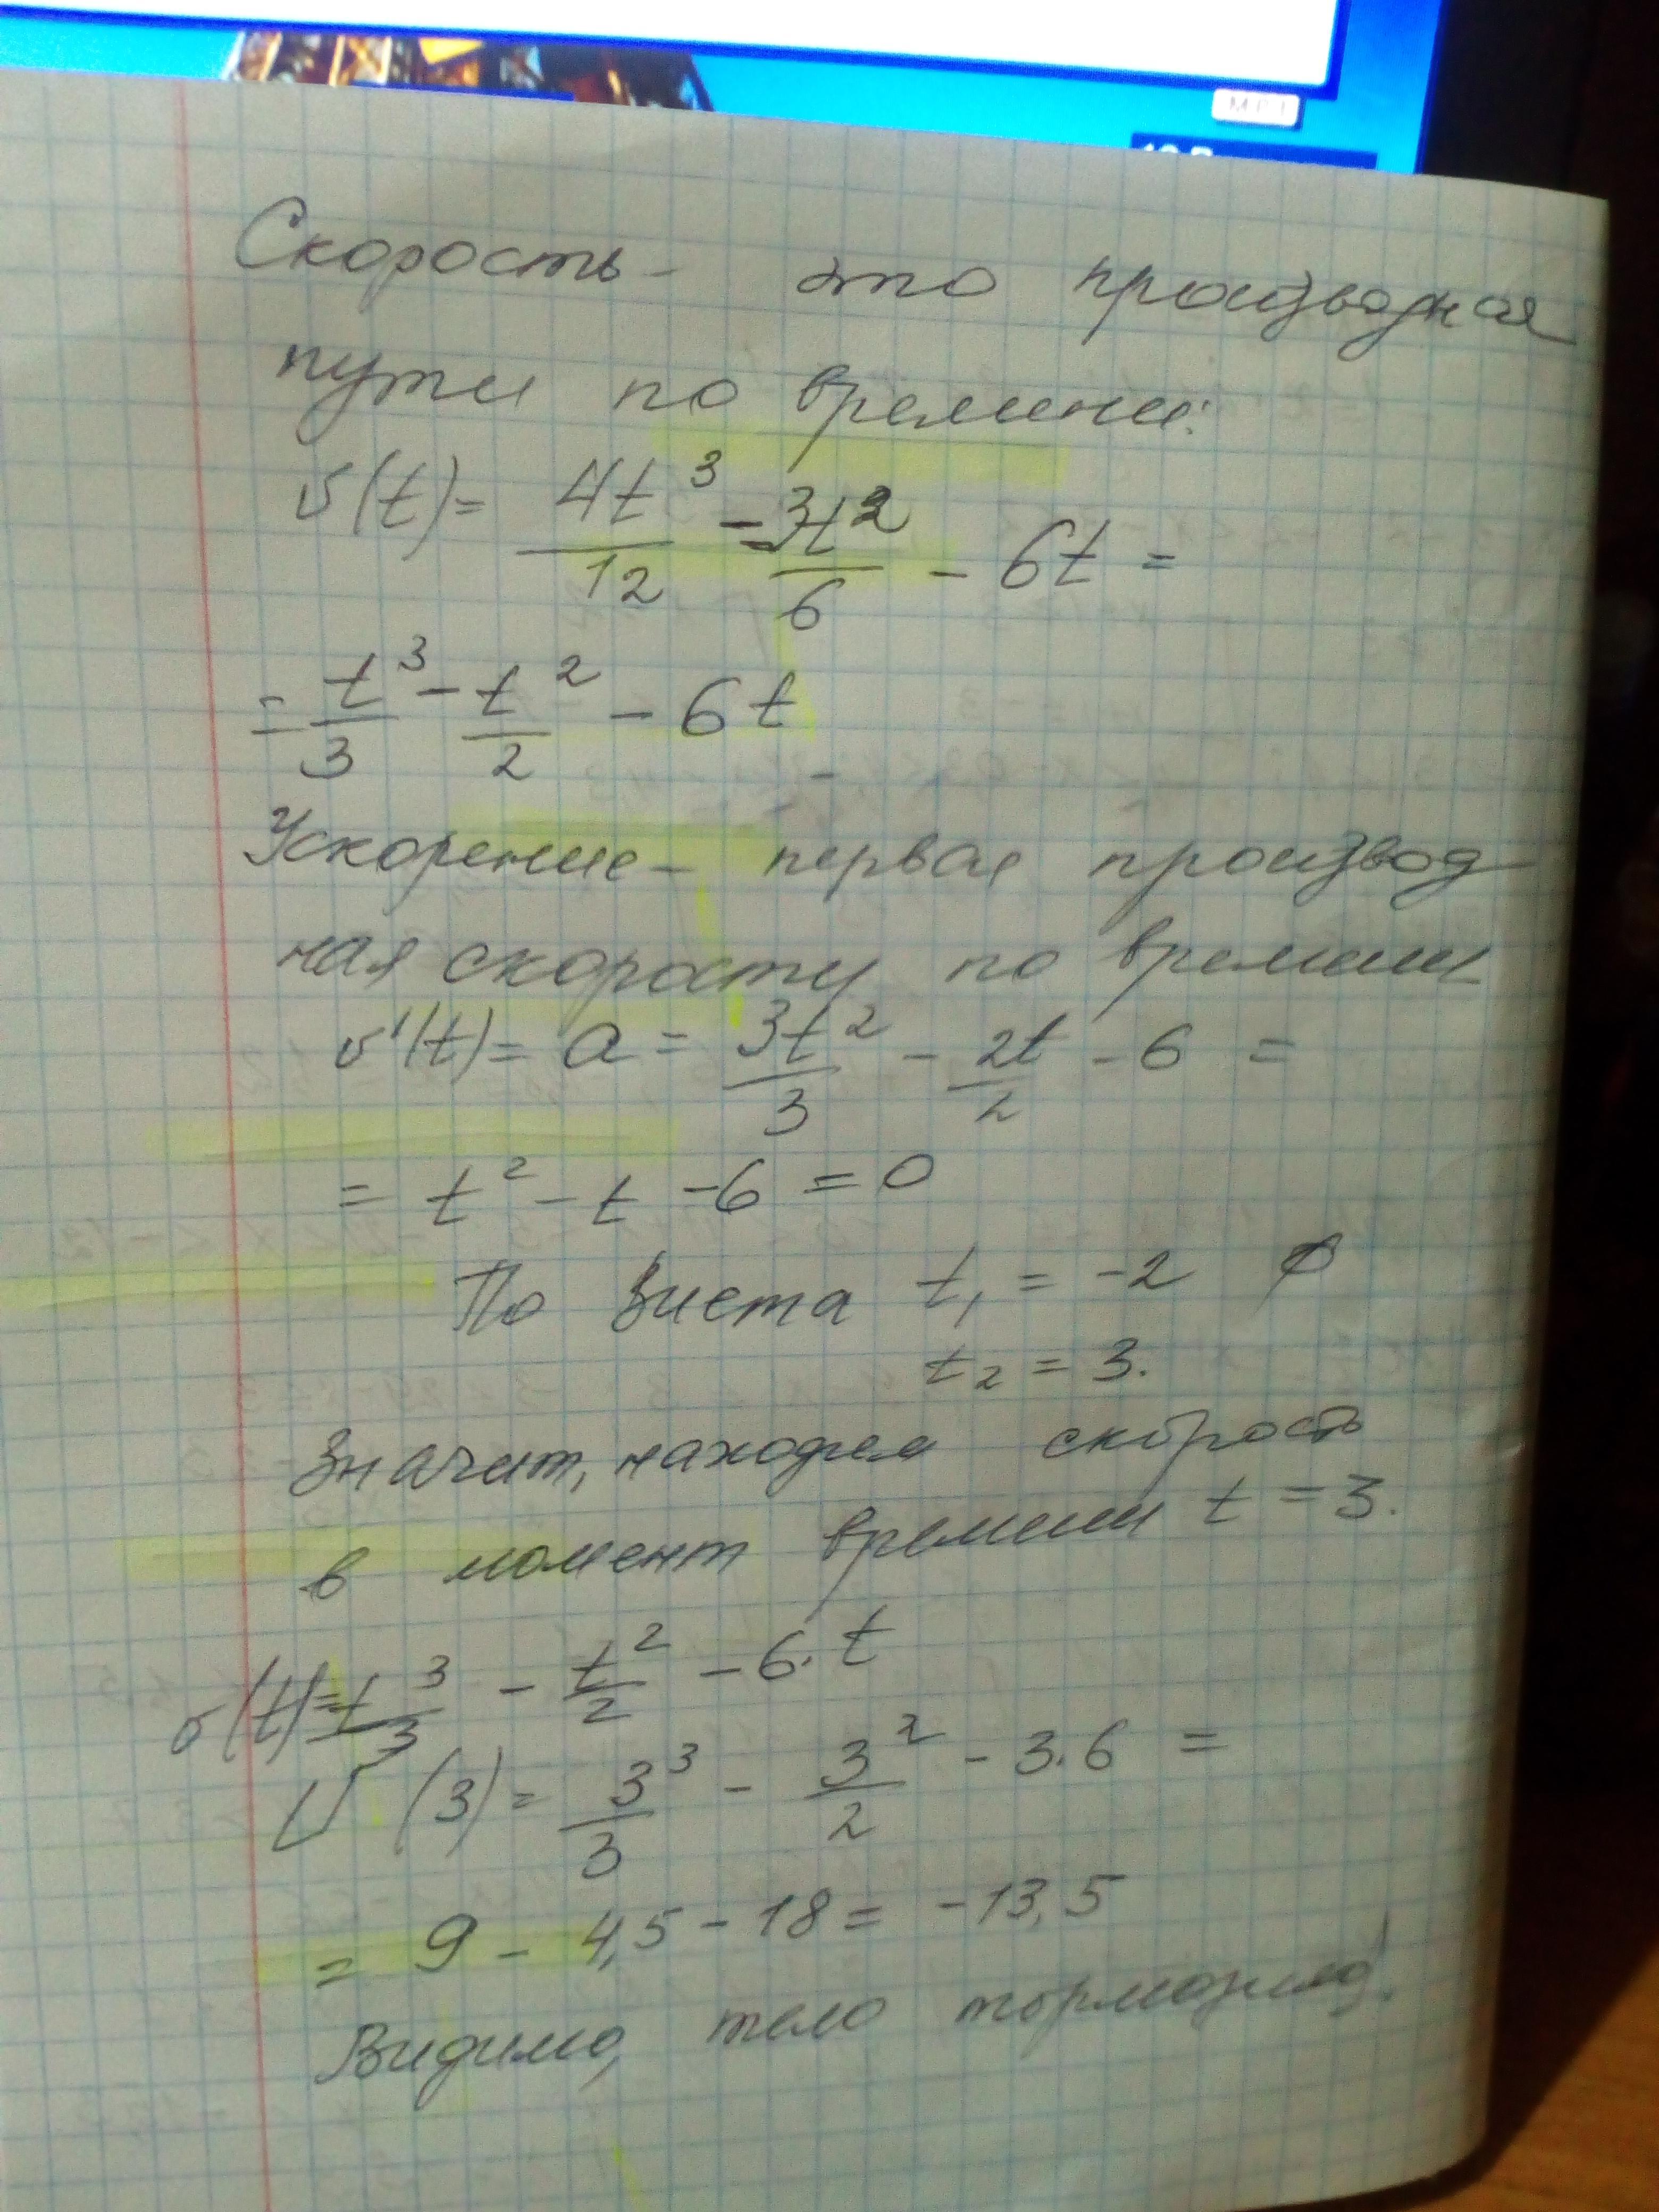 Скорость - это производная
пути по времени:
v(t) = 4t³/12 - 3t²/6 - 6t =
= t³/3 - t²/2 - 6t
Ускорение - первая производ
ная скорости по времени
v'(t) = a = 3t²/3 - 2t/2 - 6 =
= t² - t - 6 = 0
По Виета t₁ = -2 ∅
t₂ = 3.
Значит, находим скорость
в момент времени t = 3.
v(t) = t³/3 - t²/2 - 6·t
V(3) = 3³/3 - 3²/2 - 3·6 =
= 9 - 4,5 - 18 = -13,5
Видимо, тело тормозило!